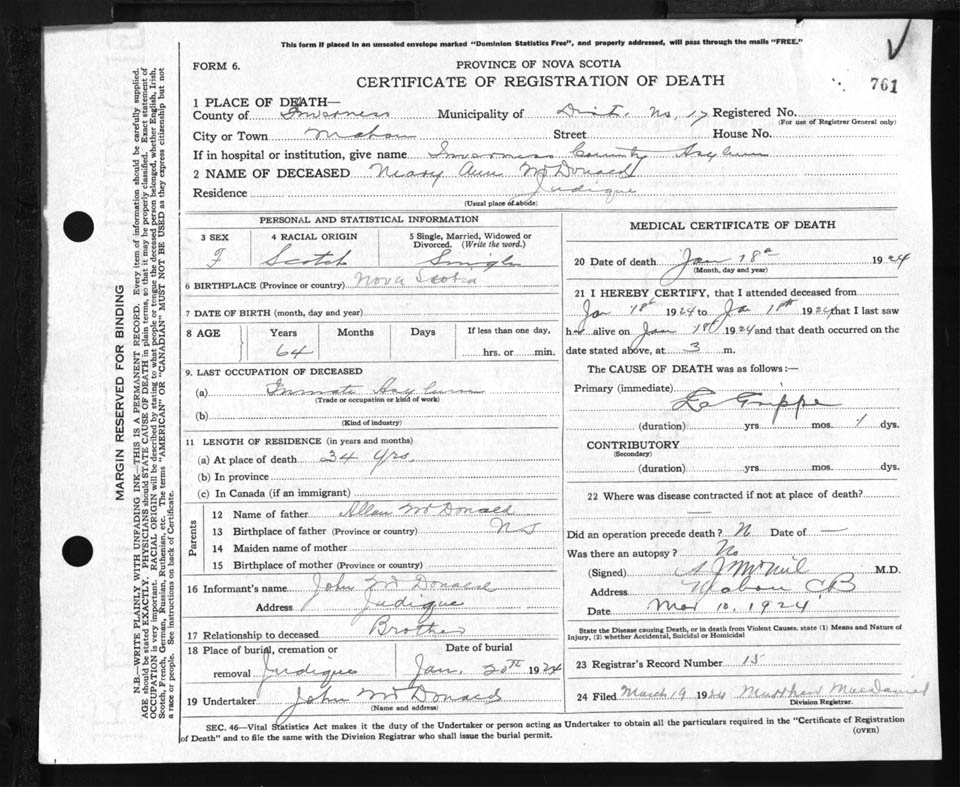 This form if placed in an unsealed envelope marked "Dominion Statistics Free", and properly addressed, will pass through the mails "FREE."
FORM 6.
PROVINCE OF NOVA SCOTIA
CERTIFICATE OF REGISTRATION OF DEATH
761
1 PLACE OF DEATH—
County of Inverness Municipality of Dist. No. 17 Registered No.
(For use of Registrar General only)
City or Town Mabou Street House No.
If in hospital or institution, give name Inverness County Asylum
2 NAME OF DECEASED Mary Ann McDonald
Residence Judique
(Usual place of abode)
PERSONAL AND STATISTICAL INFORMATION
3 SEX 4 RACIAL ORIGIN 5 Single, Married, Widowed or Divorced. (Write the word.)
F Scotch Single
6 BIRTHPLACE (Province or country) Nova Scotia
7 DATE OF BIRTH (month, day and year)
8 AGE Years Months Days If less than one day,
64 hrs. or min.
9. LAST OCCUPATION OF DECEASED
(a) Inmate Asylum
(Trade or occupation or kind of work)
(b)
(Kind of industry)
11 LENGTH OF RESIDENCE (in years and months)
(a) At place of death 34 yrs.
(b) In province
(c) In Canada (if an immigrant)
Parents
12 Name of father Allan McDonald
13 Birthplace of father (Province or country) NS
14 Maiden name of mother
15 Birthplace of mother (Province or country)
16 Informant's name John McDonald
Address Judique
17 Relationship to deceased Brother
18 Place of burial, cremation or Date of burial
removal Judique Jan. 20th 1924
19 Undertaker John McDonald
(Name and address)
MEDICAL CERTIFICATE OF DEATH
20 Date of death Jan 18th 1924
(Month, day and year)
21 I HEREBY CERTIFY, that I attended deceased from
Jan 18th 1924 to Ja 18th 1924 that I last saw
h alive on Jan 18 1924 and that death occurred on
date stated above, at 3 m.
The CAUSE OF DEATH was as follows:—
Primary (immediate)
La Grippe
(duration) yrs. mos. dys.
CONTRIBUTORY
(Secondary)
(duration) yrs. mos. dys.
22 Where was disease contracted if not at place of death?
—
Did an operation precede death? N Date of —
Was there an autopsy? No
(Signed) A J McNeil M.D.
Address Mabou CB
Date Mar 10, 1924
State the Disease causing Death, or in death from Violent Causes, state (1) Means and Nature of Injury, (2) whether Accidental, Suicidal or Homicidal
23 Registrar's Record Number 15
24 Filed March 19 1924 Matthew MacDaniel
Division Registrar.
SEC. 46—Vital Statistics Act makes it the duty of the Undertaker or person acting as Undertaker to obtain all the particulars required in the "Certificate of Registration
of Death" and to file the same with the Division Registrar who shall issue the burial permit.
(OVER)
MARGIN RESERVED FOR BINDING
N.B.—WRITE PLAINLY WITH UNFADING INK—THIS IS A PERMANENT RECORD. Every item of information should be carefully supplied.
AGE should be stated EXACTLY. PHYSICIANS should STATE CAUSE OF DEATH in plain terms, so that it may be properly classified. Exact statement of
OCCUPATION is very important. RACIAL ORIGIN will be described by stating to what people or tongue the deceased person belonged, whether English, Irish,
Scotch, French, German, Russian, Ruthenian, etc. The terms "AMERICAN" OR "CANADIAN" MUST NOT BE USED as they express citizenship but not
a race or people. See instructions on back of Certificate.